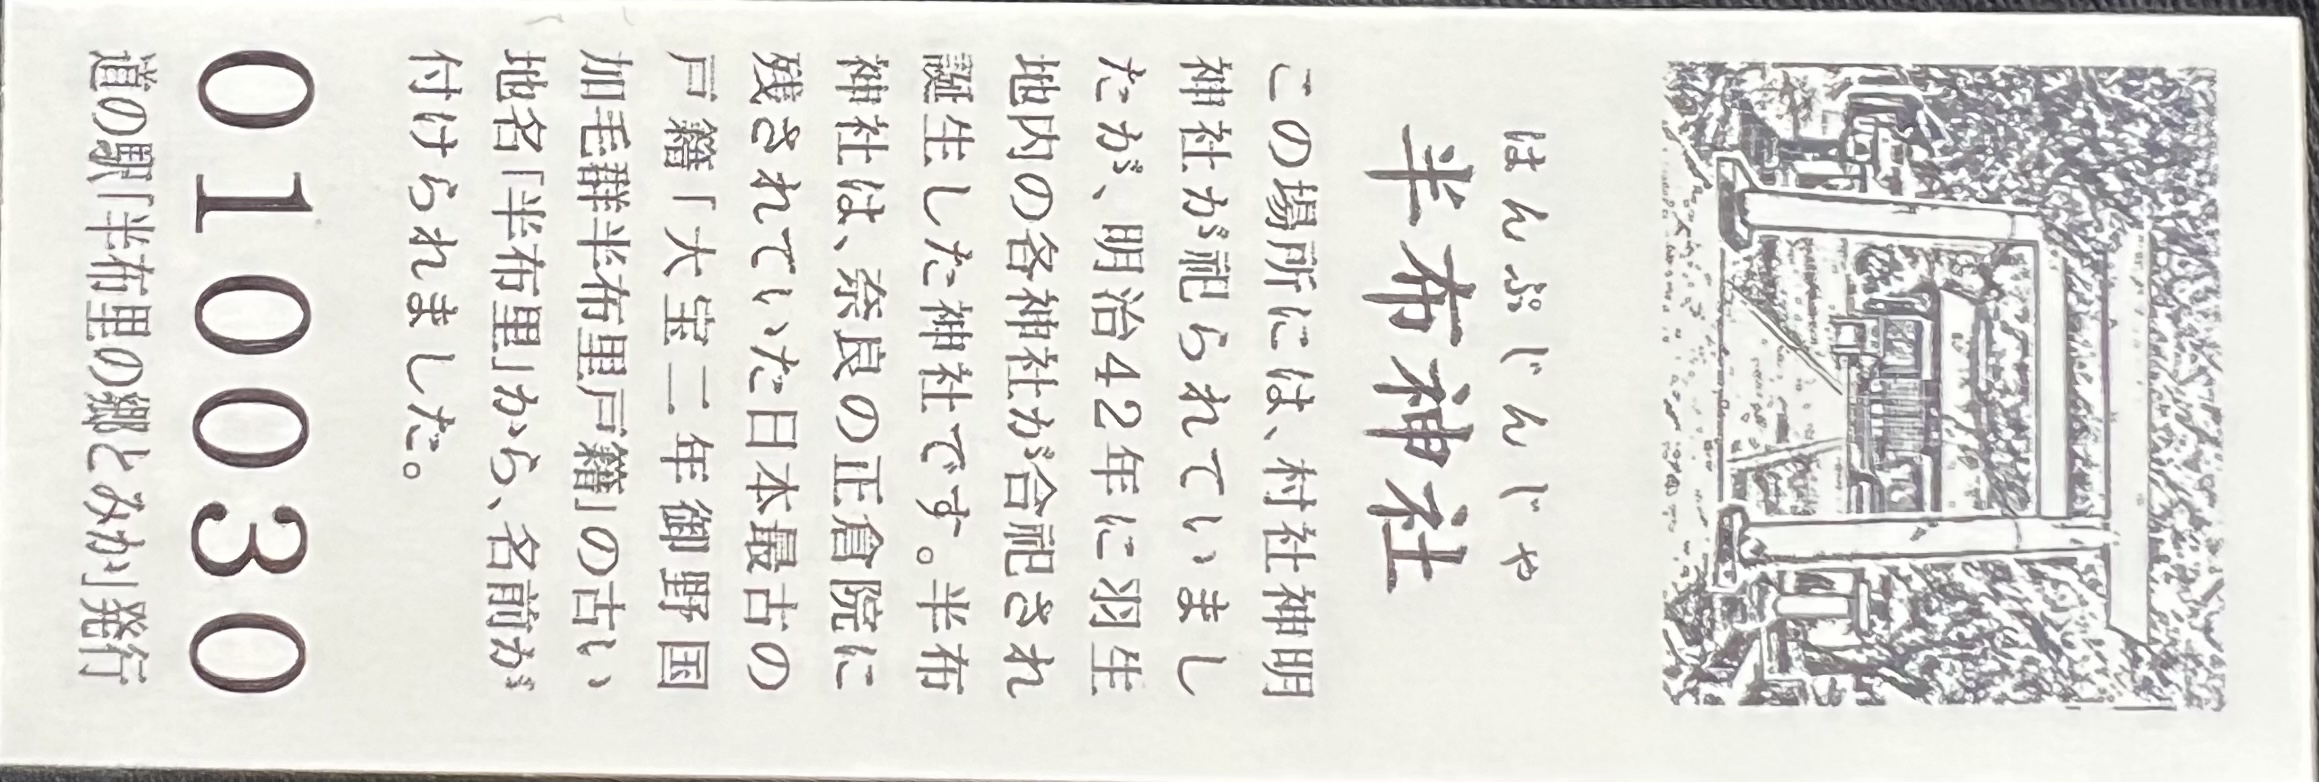 はんぷじんじゃ
半布神社
この場所には、村社神明
神社が祀られていまし
たが、明治42年に羽生
地内の各神社が合祀され
誕生した神社です。半布
神社は、奈良の正倉院に
残されていた日本最古の
戸籍「大宝二年御野国
加毛群半布里戸籍」の古い
地名「半布里」から、名前が
付けられました。
010030
道の駅「半布里の郷とみか」発行